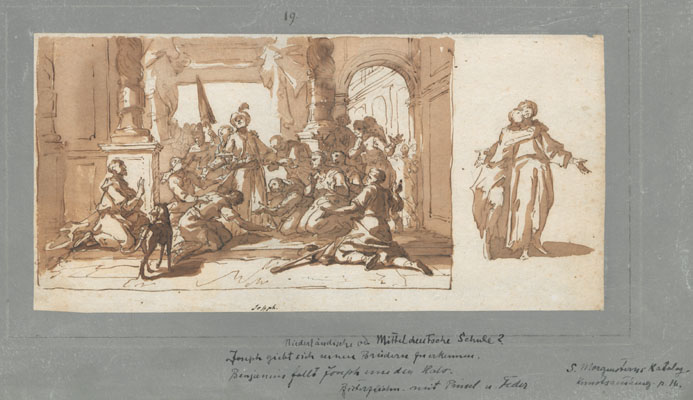 19
Joseph.
Niederländische od Mittel deutsche Schule ?
Joseph giebt sich seinen Brüdern zu erkennen.
Benjamin fällt Joseph um den Hals.
mit Pinsel u Feder
S. Morgensterns Katalog
Kunstsammlung p. 14.